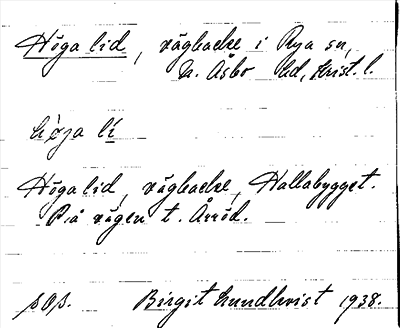 Höga lid, vägbacke i Rya sn,
N. Åsbo hd, Krist. l.
hø̀ja lí
Höga lid, vägbacke, Hallabygget.
På vägen t. Årröd.
Birgit Lundkvist 1938.